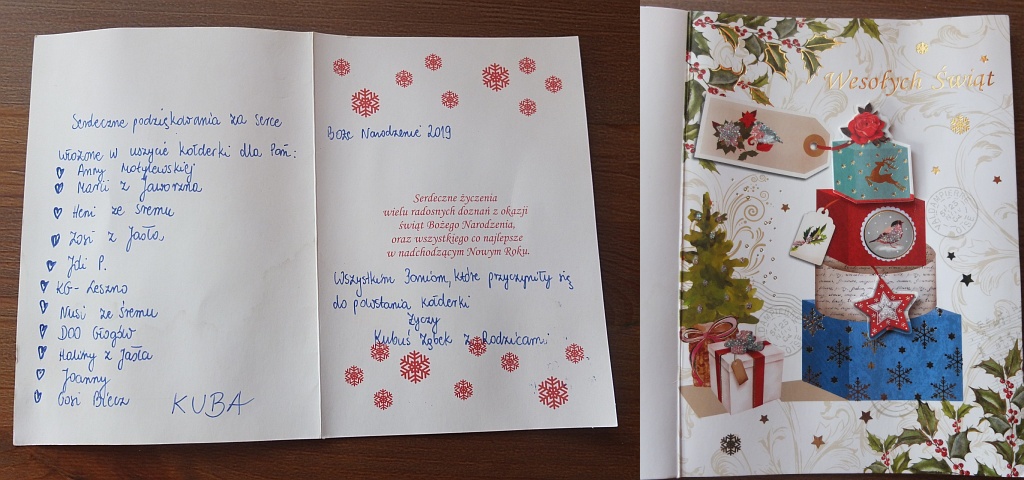 Serdeczne podziękowania za serce
włożone w uszycie kołderki dla Pań:
Anny Motylewskiej
Marii z Jaworzna
Heni ze Śremu
Zosi z Jasła
Idi P.
KG - Leszno
Nusi ze Śremu
DOO Głogów
Haliny z Jasła
Joanny
Gosi Biecz
KUBA
Boże Narodzenie 2019
Serdeczne życzenia
wielu radosnych doznań z okazji
świąt Bożego Narodzenia,
oraz wszystkiego co najlepsze
w nadchodzącym Nowym Roku.
Wszystkim Paniom, które przyczyniły się
do powstania kołderki
życzy
Kubuś Ząbek z Rodzicami
Wesołych Świąt